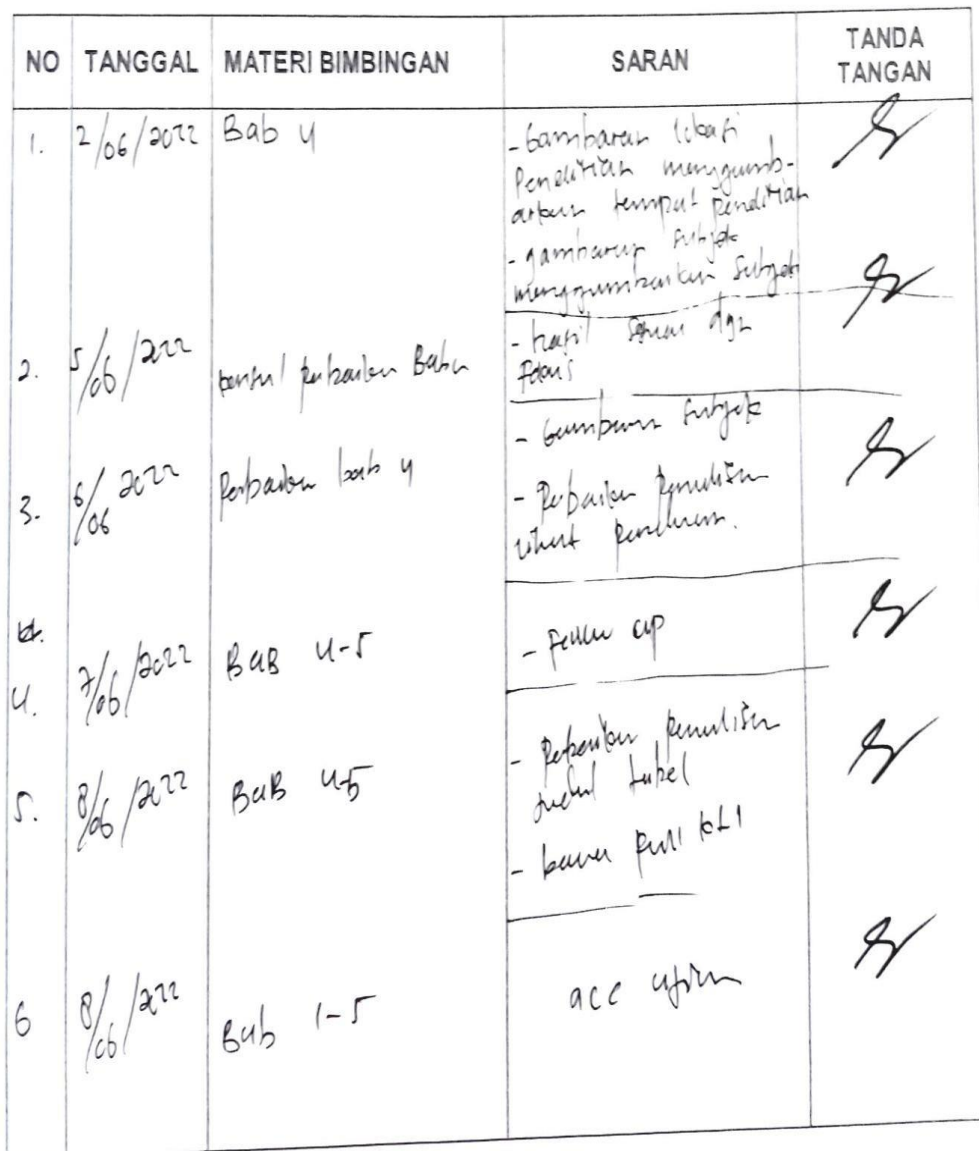 NO TANGGAL MATERI BIMBINGAN SARAN TANDA TANGAN
1. 2/06/2022 Bab 4
- Gambaran lokasi
Penelitian menggamb-
arkan tempat penelitian
- gambaran subjek
menggambarkan subjek
2. 5/06/2022 konsul perbaikan Bab 4
- hasil sesuai dgn
Fokus
3. 6/06 2022 Perbaikan bab 4
- Gambaran subjek
- Perbaikan penulisan
4. 7/06/2022 BAB 4-5
- Follow up
5. 8/06/2022 BAB 4-5
- Perbaikan penulisan
judul tabel
- bawa full KTI
6 8/06/2022 Bab 1-5
acc ujian